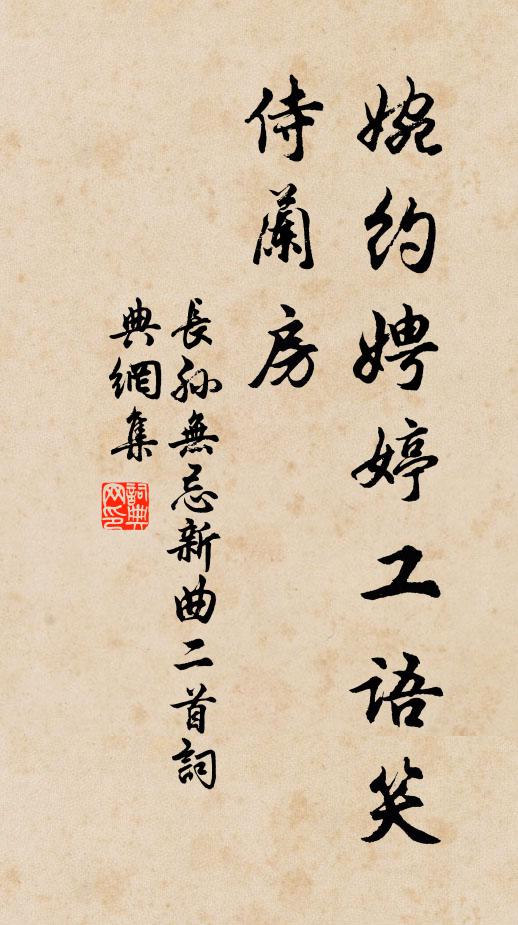 婉約娉婷工語笑
侍蘭房
長孫無忌新曲二首詞
典網集
詞典
网印